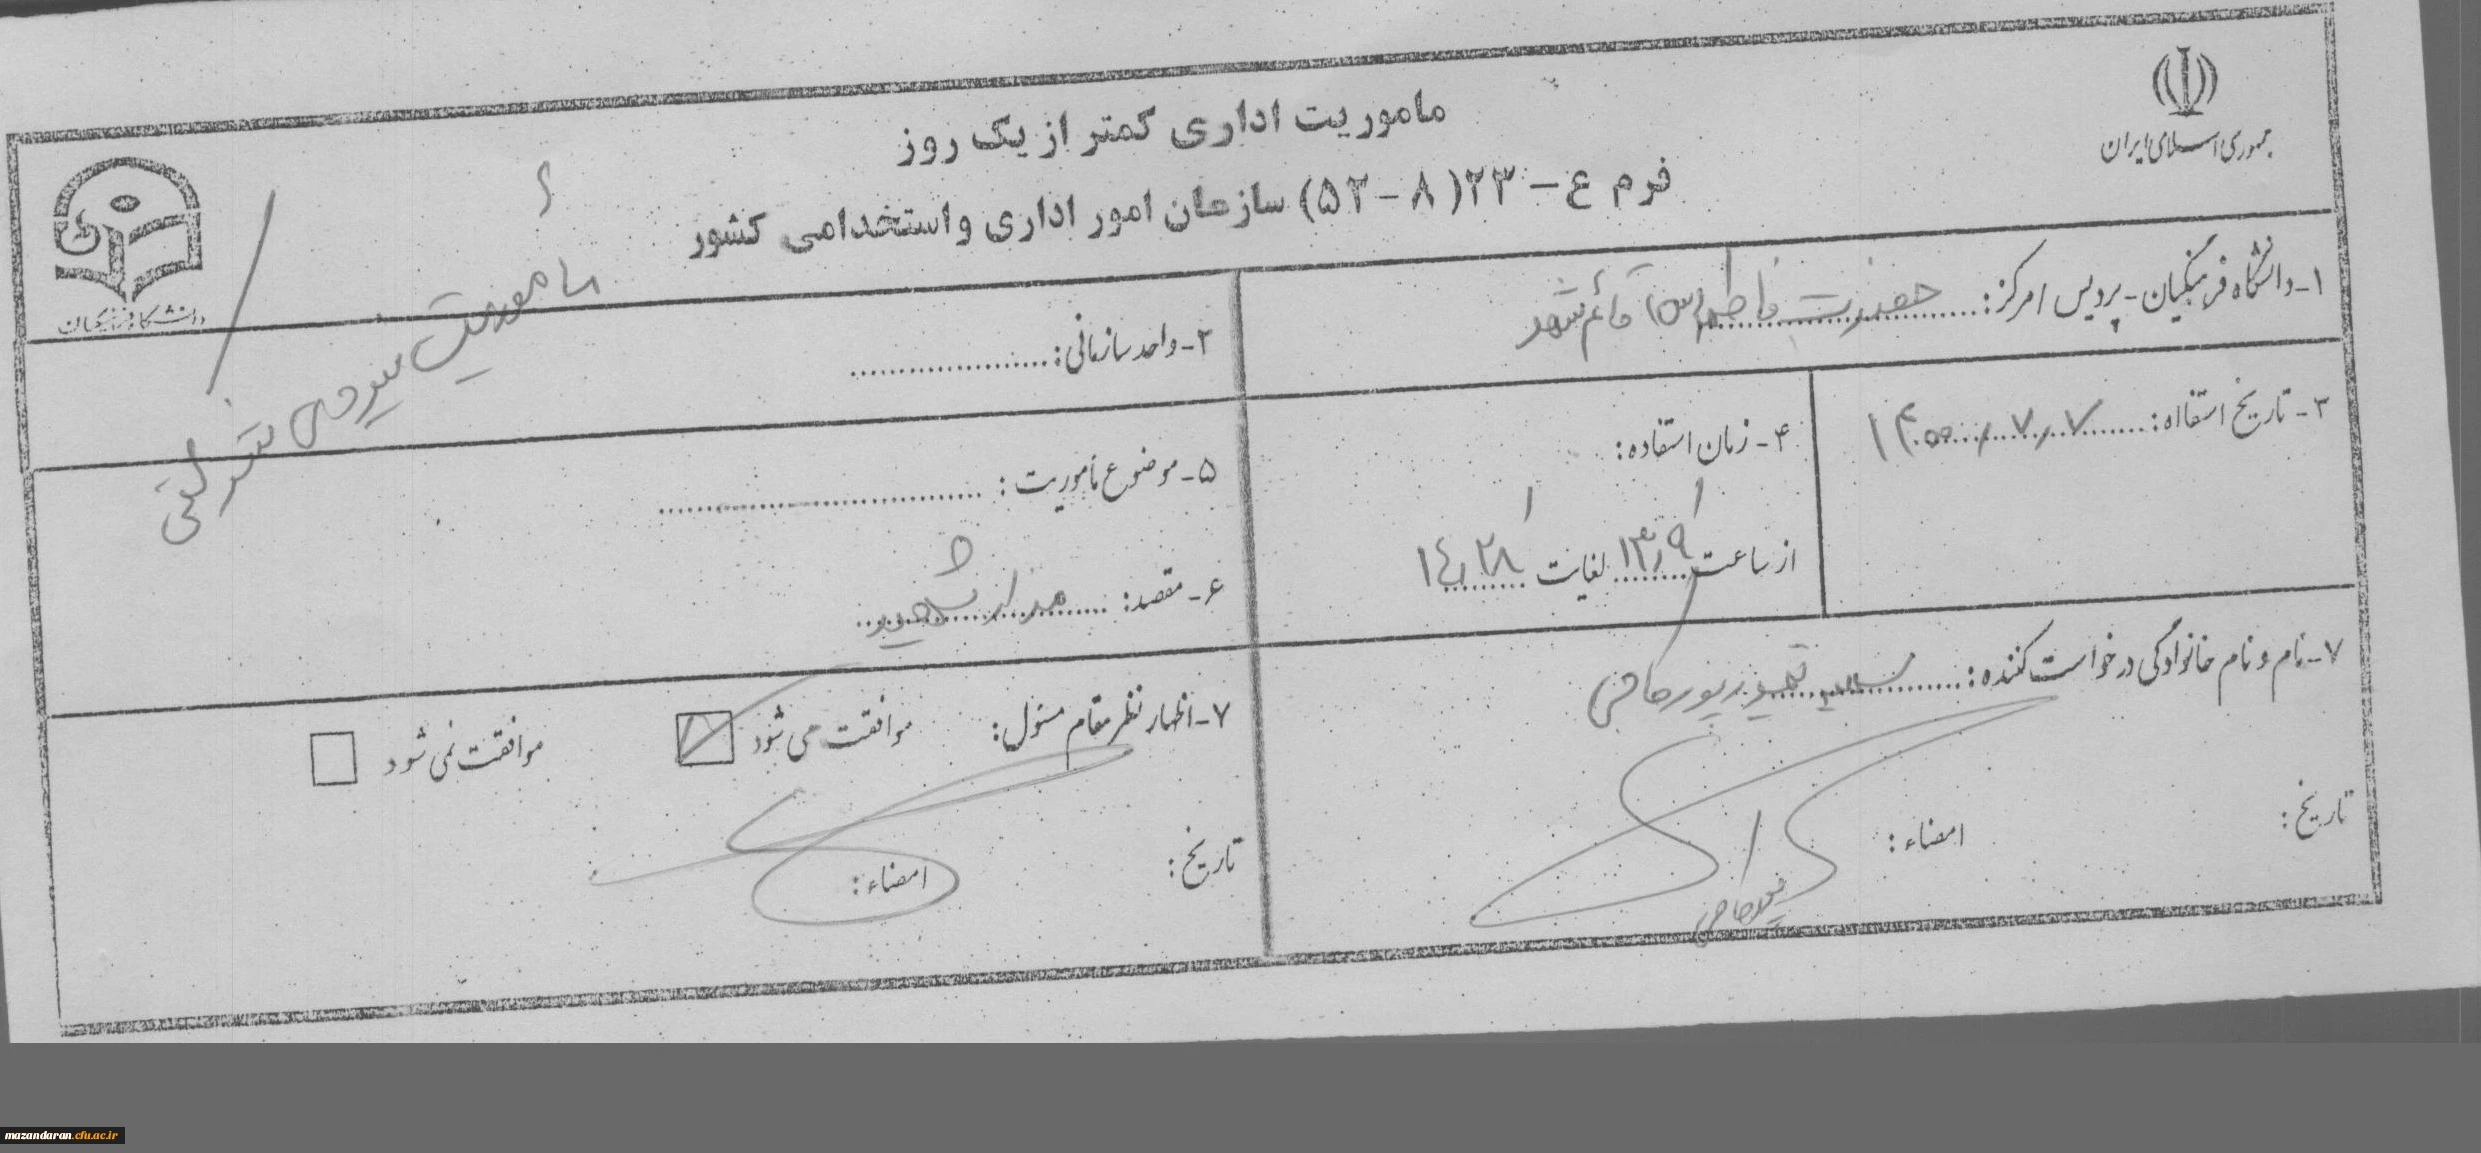 جمهوری اسلامی ایران
ماموریت اداری کمتر از یک روز
فرم ع - ۲۳ (۸ - ۵۲) سازمان امور اداری و استخدامی کشور
دانشگاه فرهنگیان
۱- دانشگاه فرهنگیان - پردیس / مرکز: حضرت فاطمه (س) قائم شهر
۲- واحد سازمانی:
ماموریت
۳- تاریخ استفاده: ۱۴۰۰/۷/۷
۴- زمان استفاده:
از ساعت ۱۳/۹ لغایت ۱۴/۲۸
۵- موضوع ماموریت:
۶- مقصد: مزار شهید
۷- نام و نام خانوادگی درخواست کننده: پورحاجی
تاریخ: امضاء:
۷- اظهار نظر مقام مسئول: موافقت می شود موافقت نمی شود
تاریخ: امضاء:
mazandaran.cfu.ac.ir